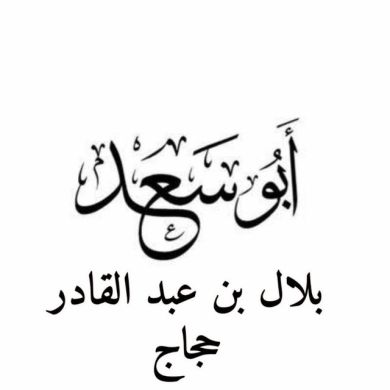 أَبُو سَعد
بلال بن عبد القادر
حجاج